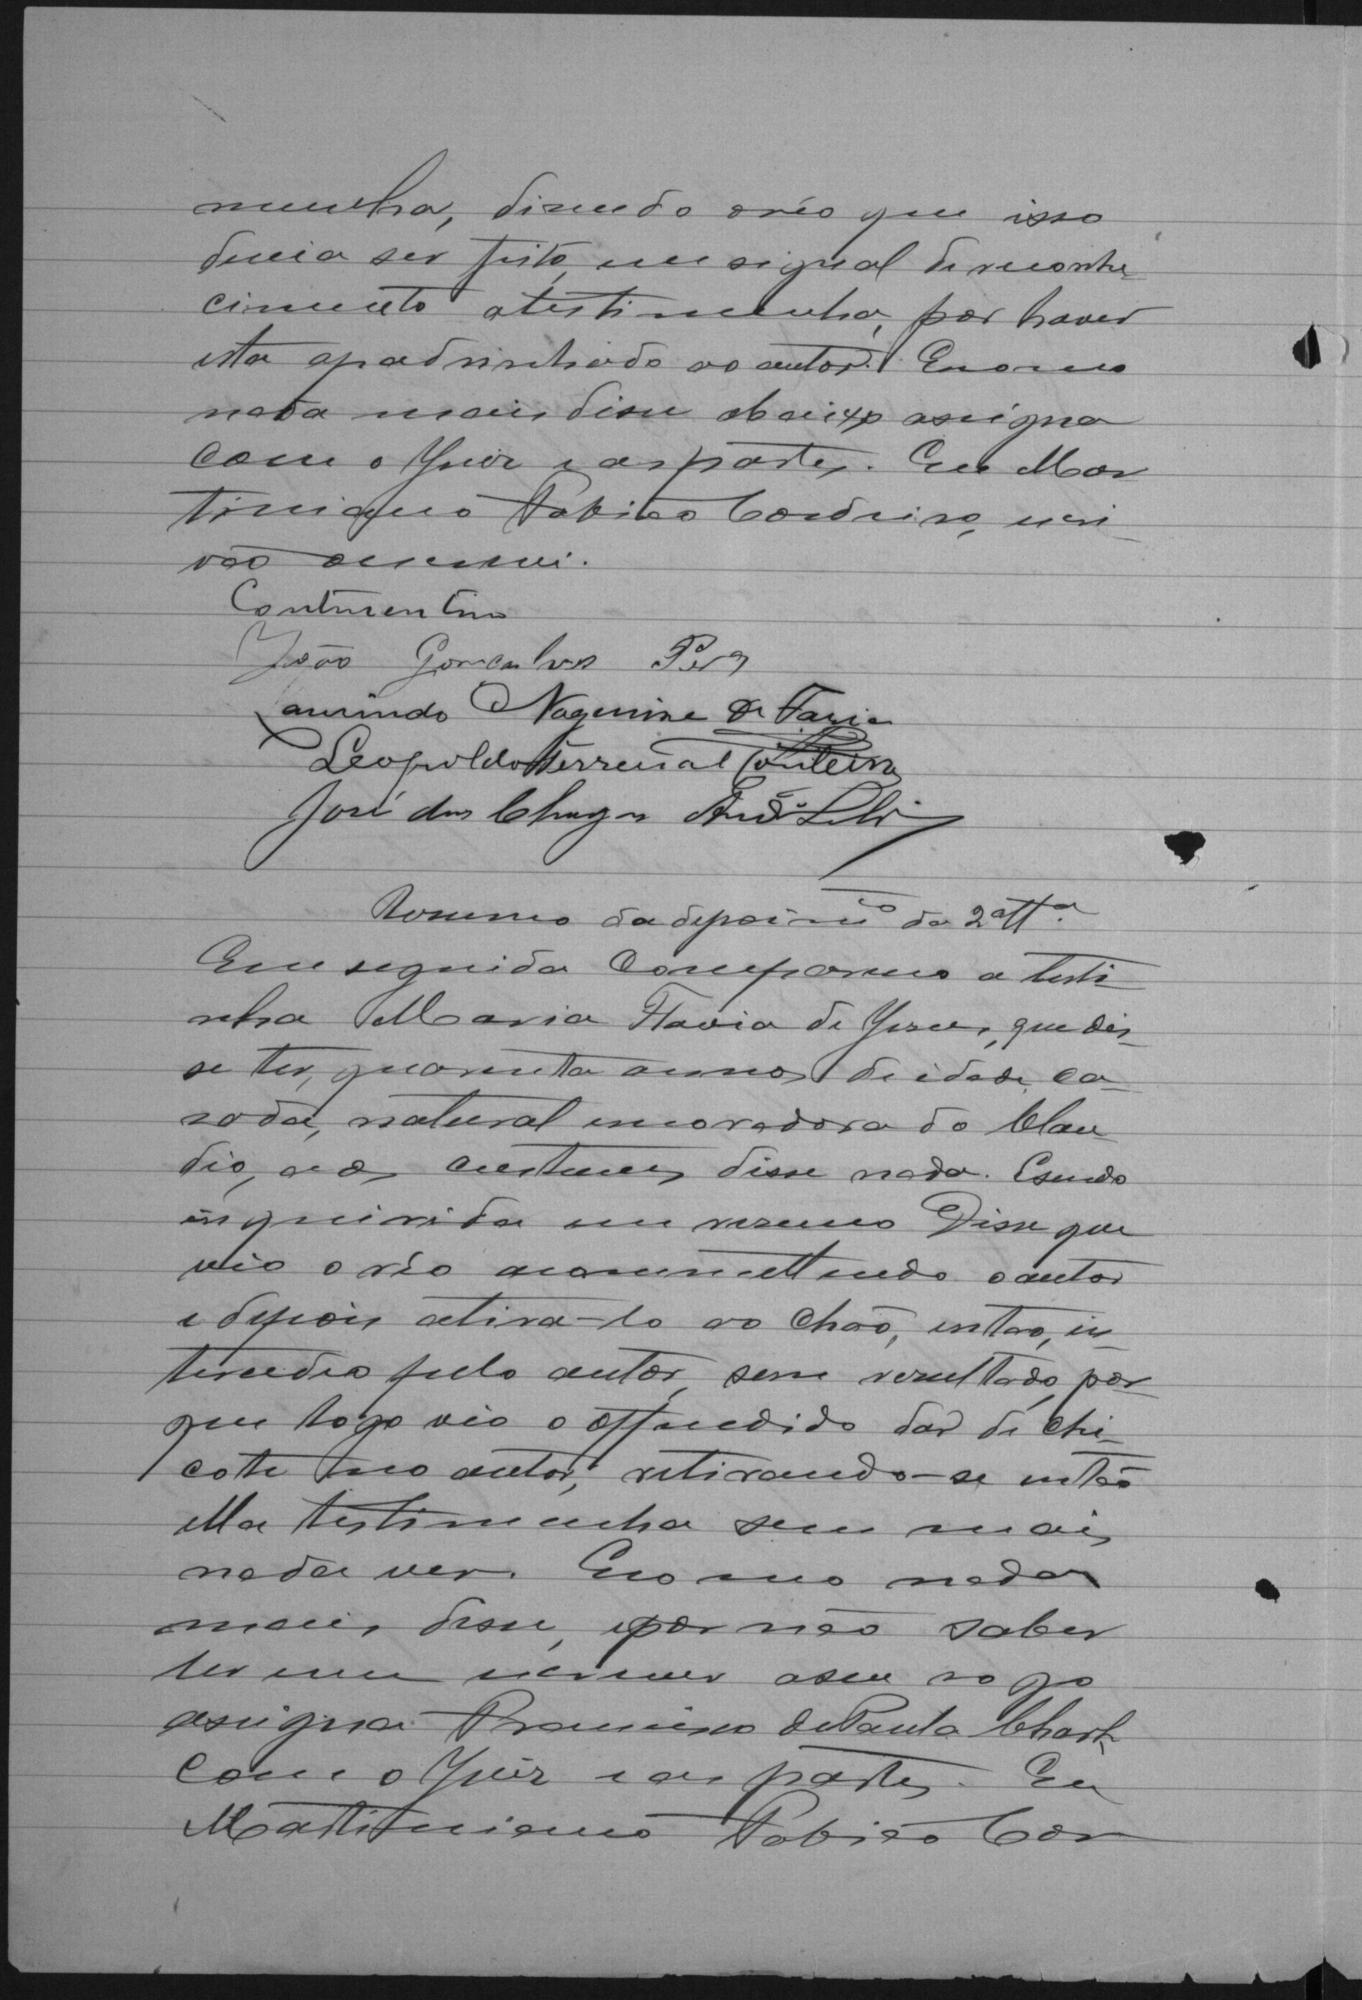 munha, dizendo o réo que isso
devia ser feito, em signal de reconhe-
cimento a testimunha, por haver
esta apadrinhado ao autor. E como
nada mais disse abaixo assigna
com o Juiz e as partes. Eu Mar
timiano Fabião Cordeiro, escri-
vão escrevi.
Continentino
João Gonçalves
Laurindo Nogueira de Faria
Leopoldo
José das Chagas
Resumo do depoim.to da 2ª tt.ª
Em seguida compareceu a testi-
nha Maria Flavia de Jesus, que dis-
se ter, quarenta annos de idade, ca-
zada, natural e moradora do Clau
dio, aos custumes disse nada. E sendo
inquirida em resumo Disse que
vio o réo acommettendo o autor
e depois atira-lo ao chão, então, in-
tercedeo pelo autor, sem rezultado, por-
que logo vio o offendido dar de chi-
cote no autor, retirando-se então
ella testimunha sem mais
nada ver. E como nada
mais disse, e por não saber
ler nem escrever a seu rogo
assigna Francisco de Paula
com o Juiz e as partes. Eu
Martimiano Fabião Cor